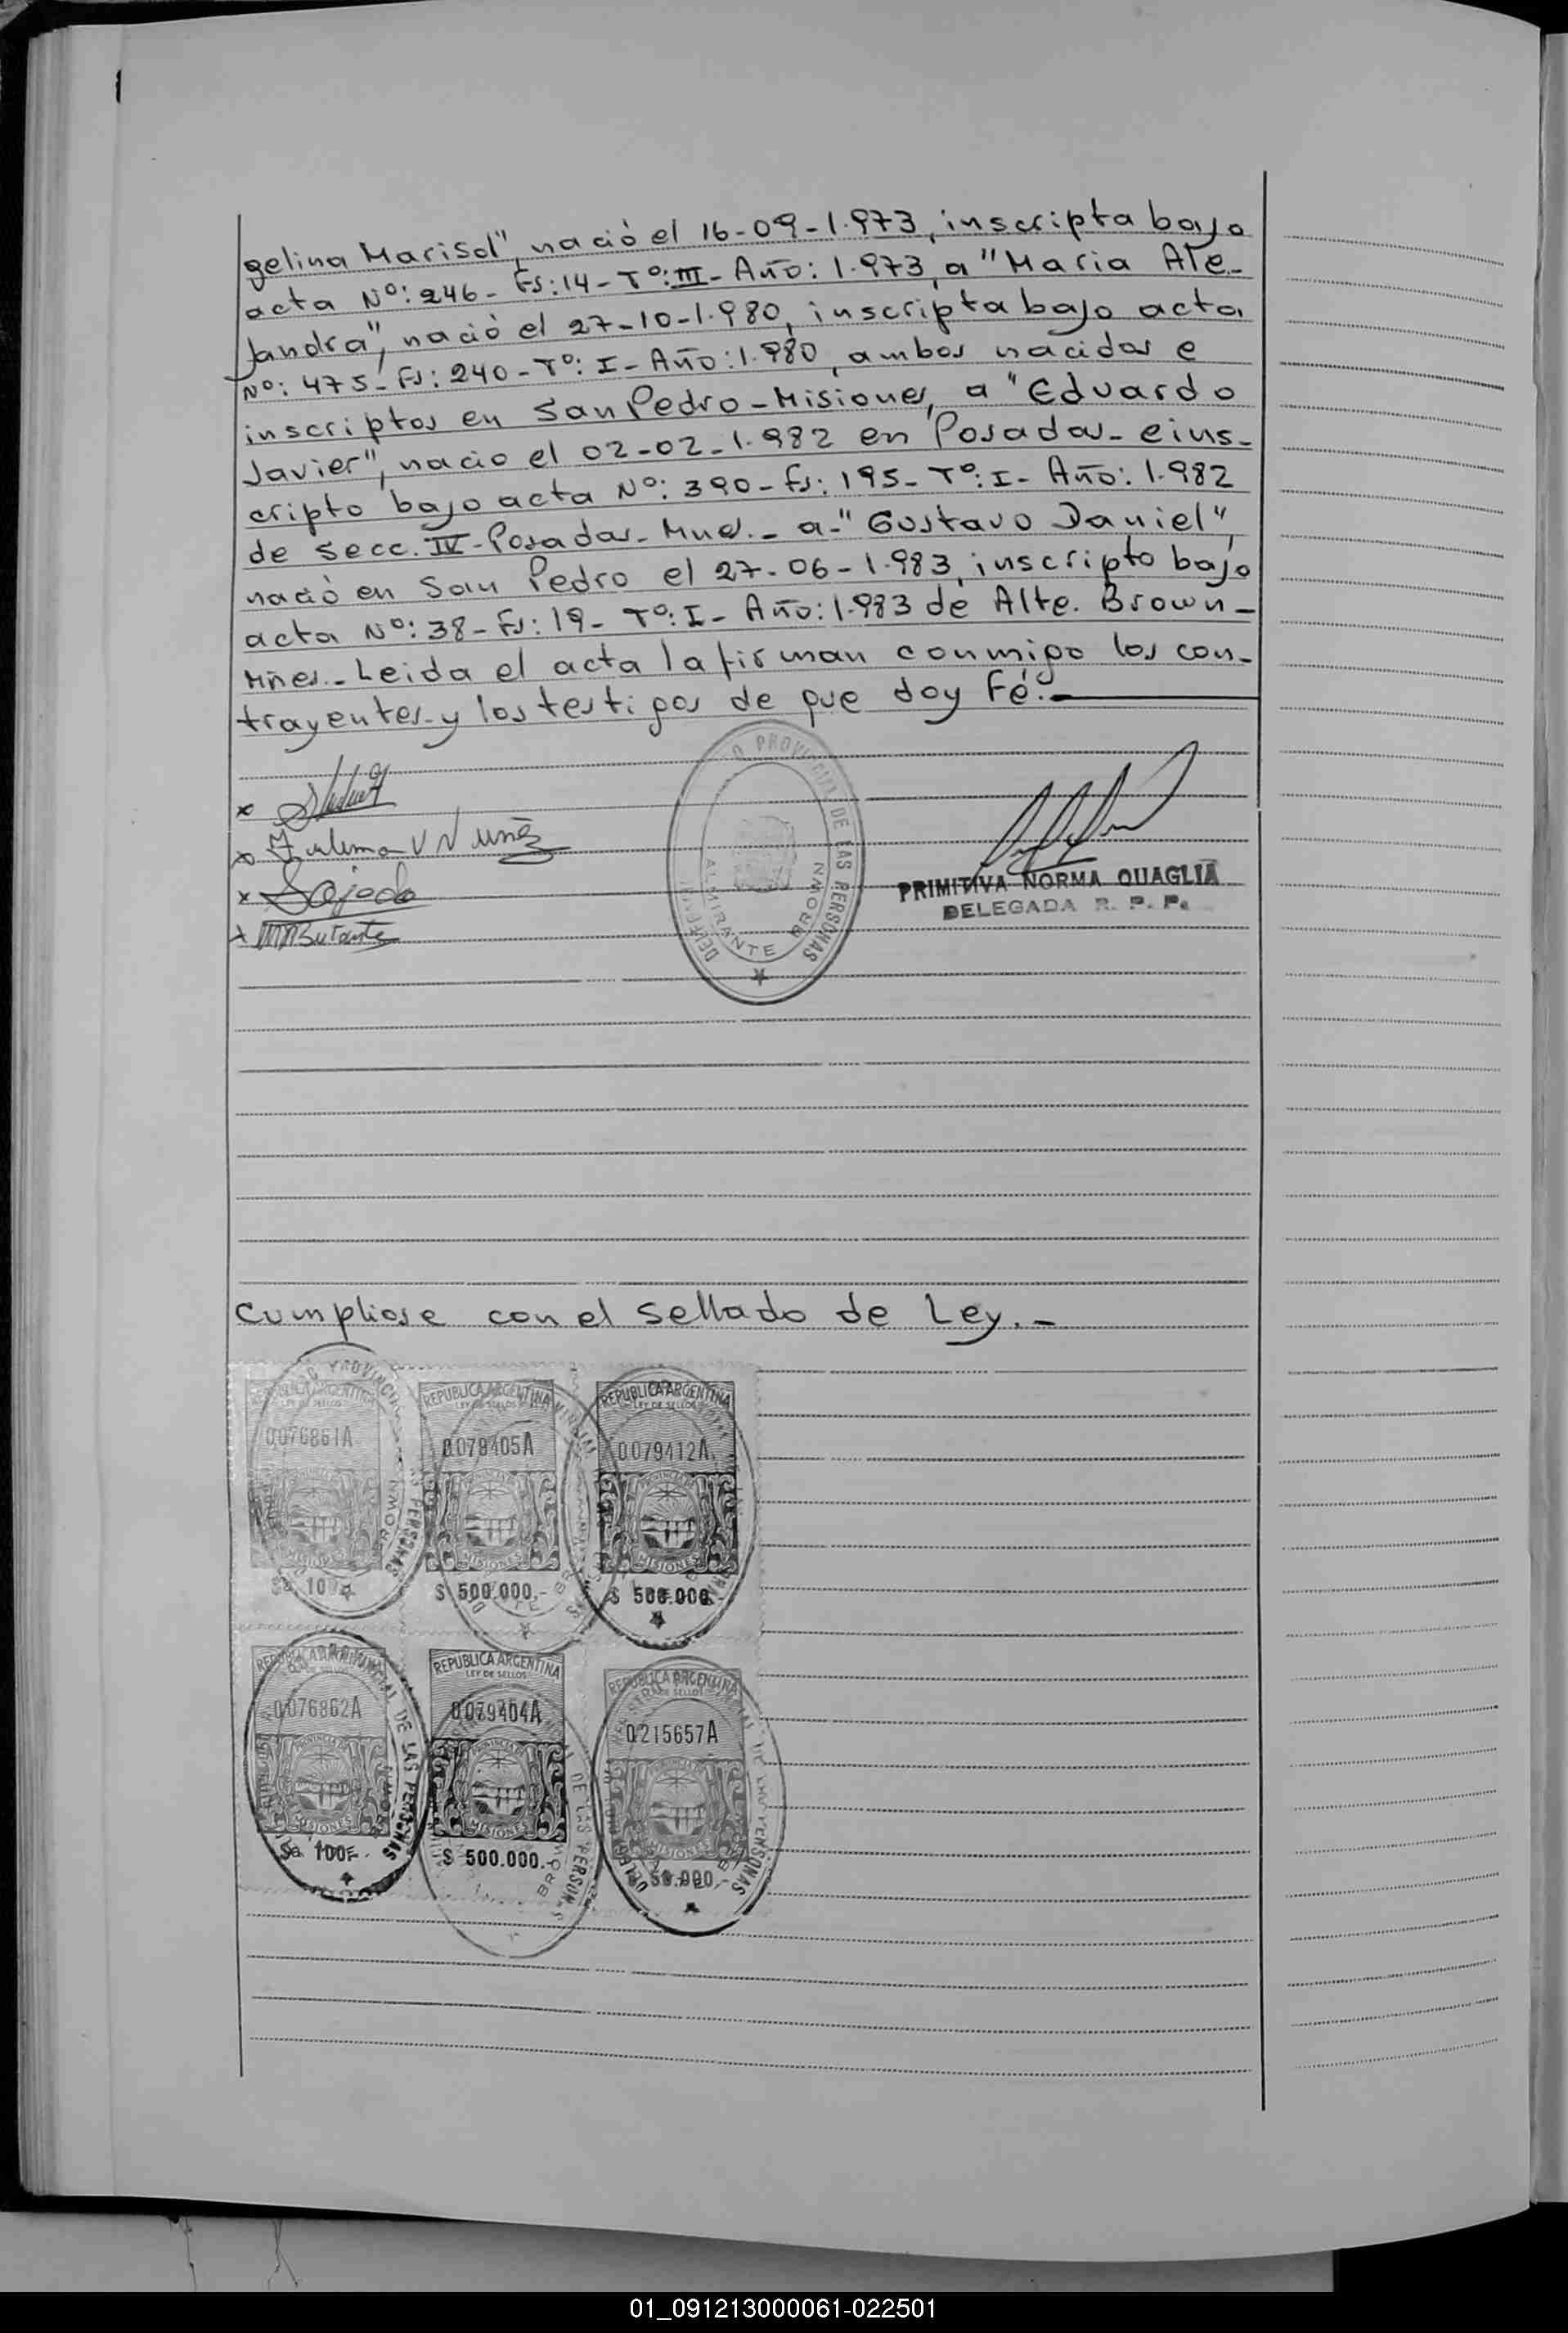 gelina Marisol", nació el 16-09-1.973, inscripta bajo
acta Nº: 246- Fs:14- Tº: III- Año: 1.973, a "Maria Ale-
jandra", nació el 27-10-1.980, inscripta bajo acta
Nº: 475- Fs: 240- Tº: I- Año: 1.980, ambos nacidos e
inscriptos en San Pedro-Misiones, a "Eduardo
Javier", nacio el 02-02-1.982 en Posadas- e ins-
cripto bajo acta Nº: 390- Fs: 195- Tº: I- Año: 1.982
de Secc. IV- Posadas- Mnes.- a-"Gustavo Daniel",
nació en San Pedro el 27-06-1.983, inscripto bajo
acta Nº: 38- Fs: 19- Tº: I- Año: 1.983 de Alte. Brown-
Mnes.- Leida el acta la firman conmigo los con-
trayentes y los testigos de que doy Fé.-
PROVINCIAL DE LAS PERSONAS
ALMIRANTE BROWN
PRIMITIVA NORMA QUAGLIA
DELEGADA R. P. P.
Cumpliose con el sellado de Ley.-
REPUBLICA ARGENTINA
LEY DE SELLOS
0076861A
MISIONES
REPUBLICA ARGENTINA
LEY DE SELLOS
0079405A
MISIONES
$ 500.000.-
REPUBLICA ARGENTINA
LEY DE SELLOS
0079412A
MISIONES
$ 500.000.-
REPUBLICA ARGENTINA
0076862A
MISIONES
100.-
REPUBLICA ARGENTINA
LEY DE SELLOS
0079404A
MISIONES
$ 500.000.-
REPUBLICA ARGENTINA
LEY DE SELLOS
0215657A
MISIONES
50.000.-
01_091213000061-022501